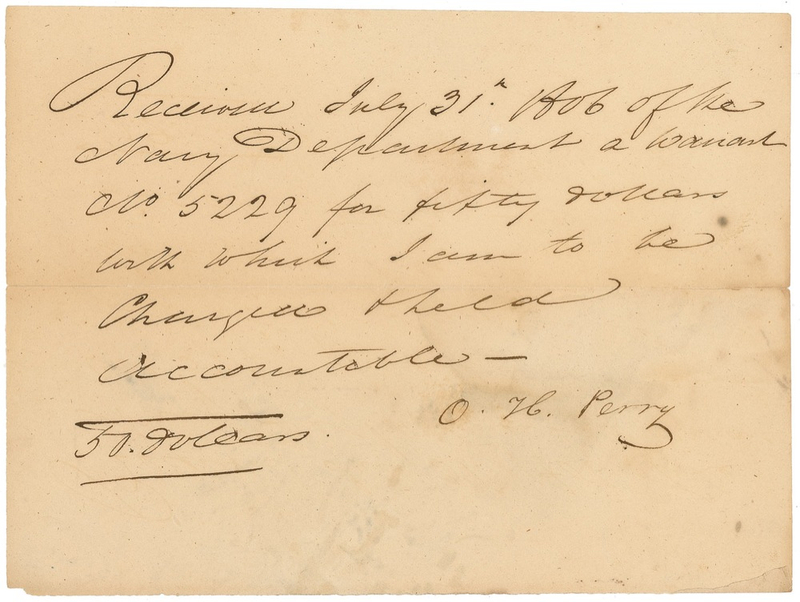 Received July 31st. 1806 of the
Navy Department a Warrant
No. 5229 for fifty dollars
with which I am to be
Charged & held
Accountable —
50. dollars.
O. H. Perry